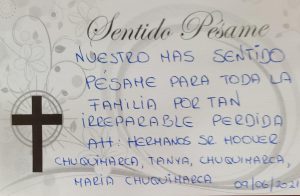 Sentido Pésame
NUESTRO MAS SENTIDO
PÉSAME PARA TODA LA
FAMILIA POR TAN
IRREPARABLE PERDIDA
Att: HERMANOS SR HOOVER
CHUQUIMARCA, TANYA, CHUQUIMARCA,
MARIA CHUQUIMARCA
09/06/2021